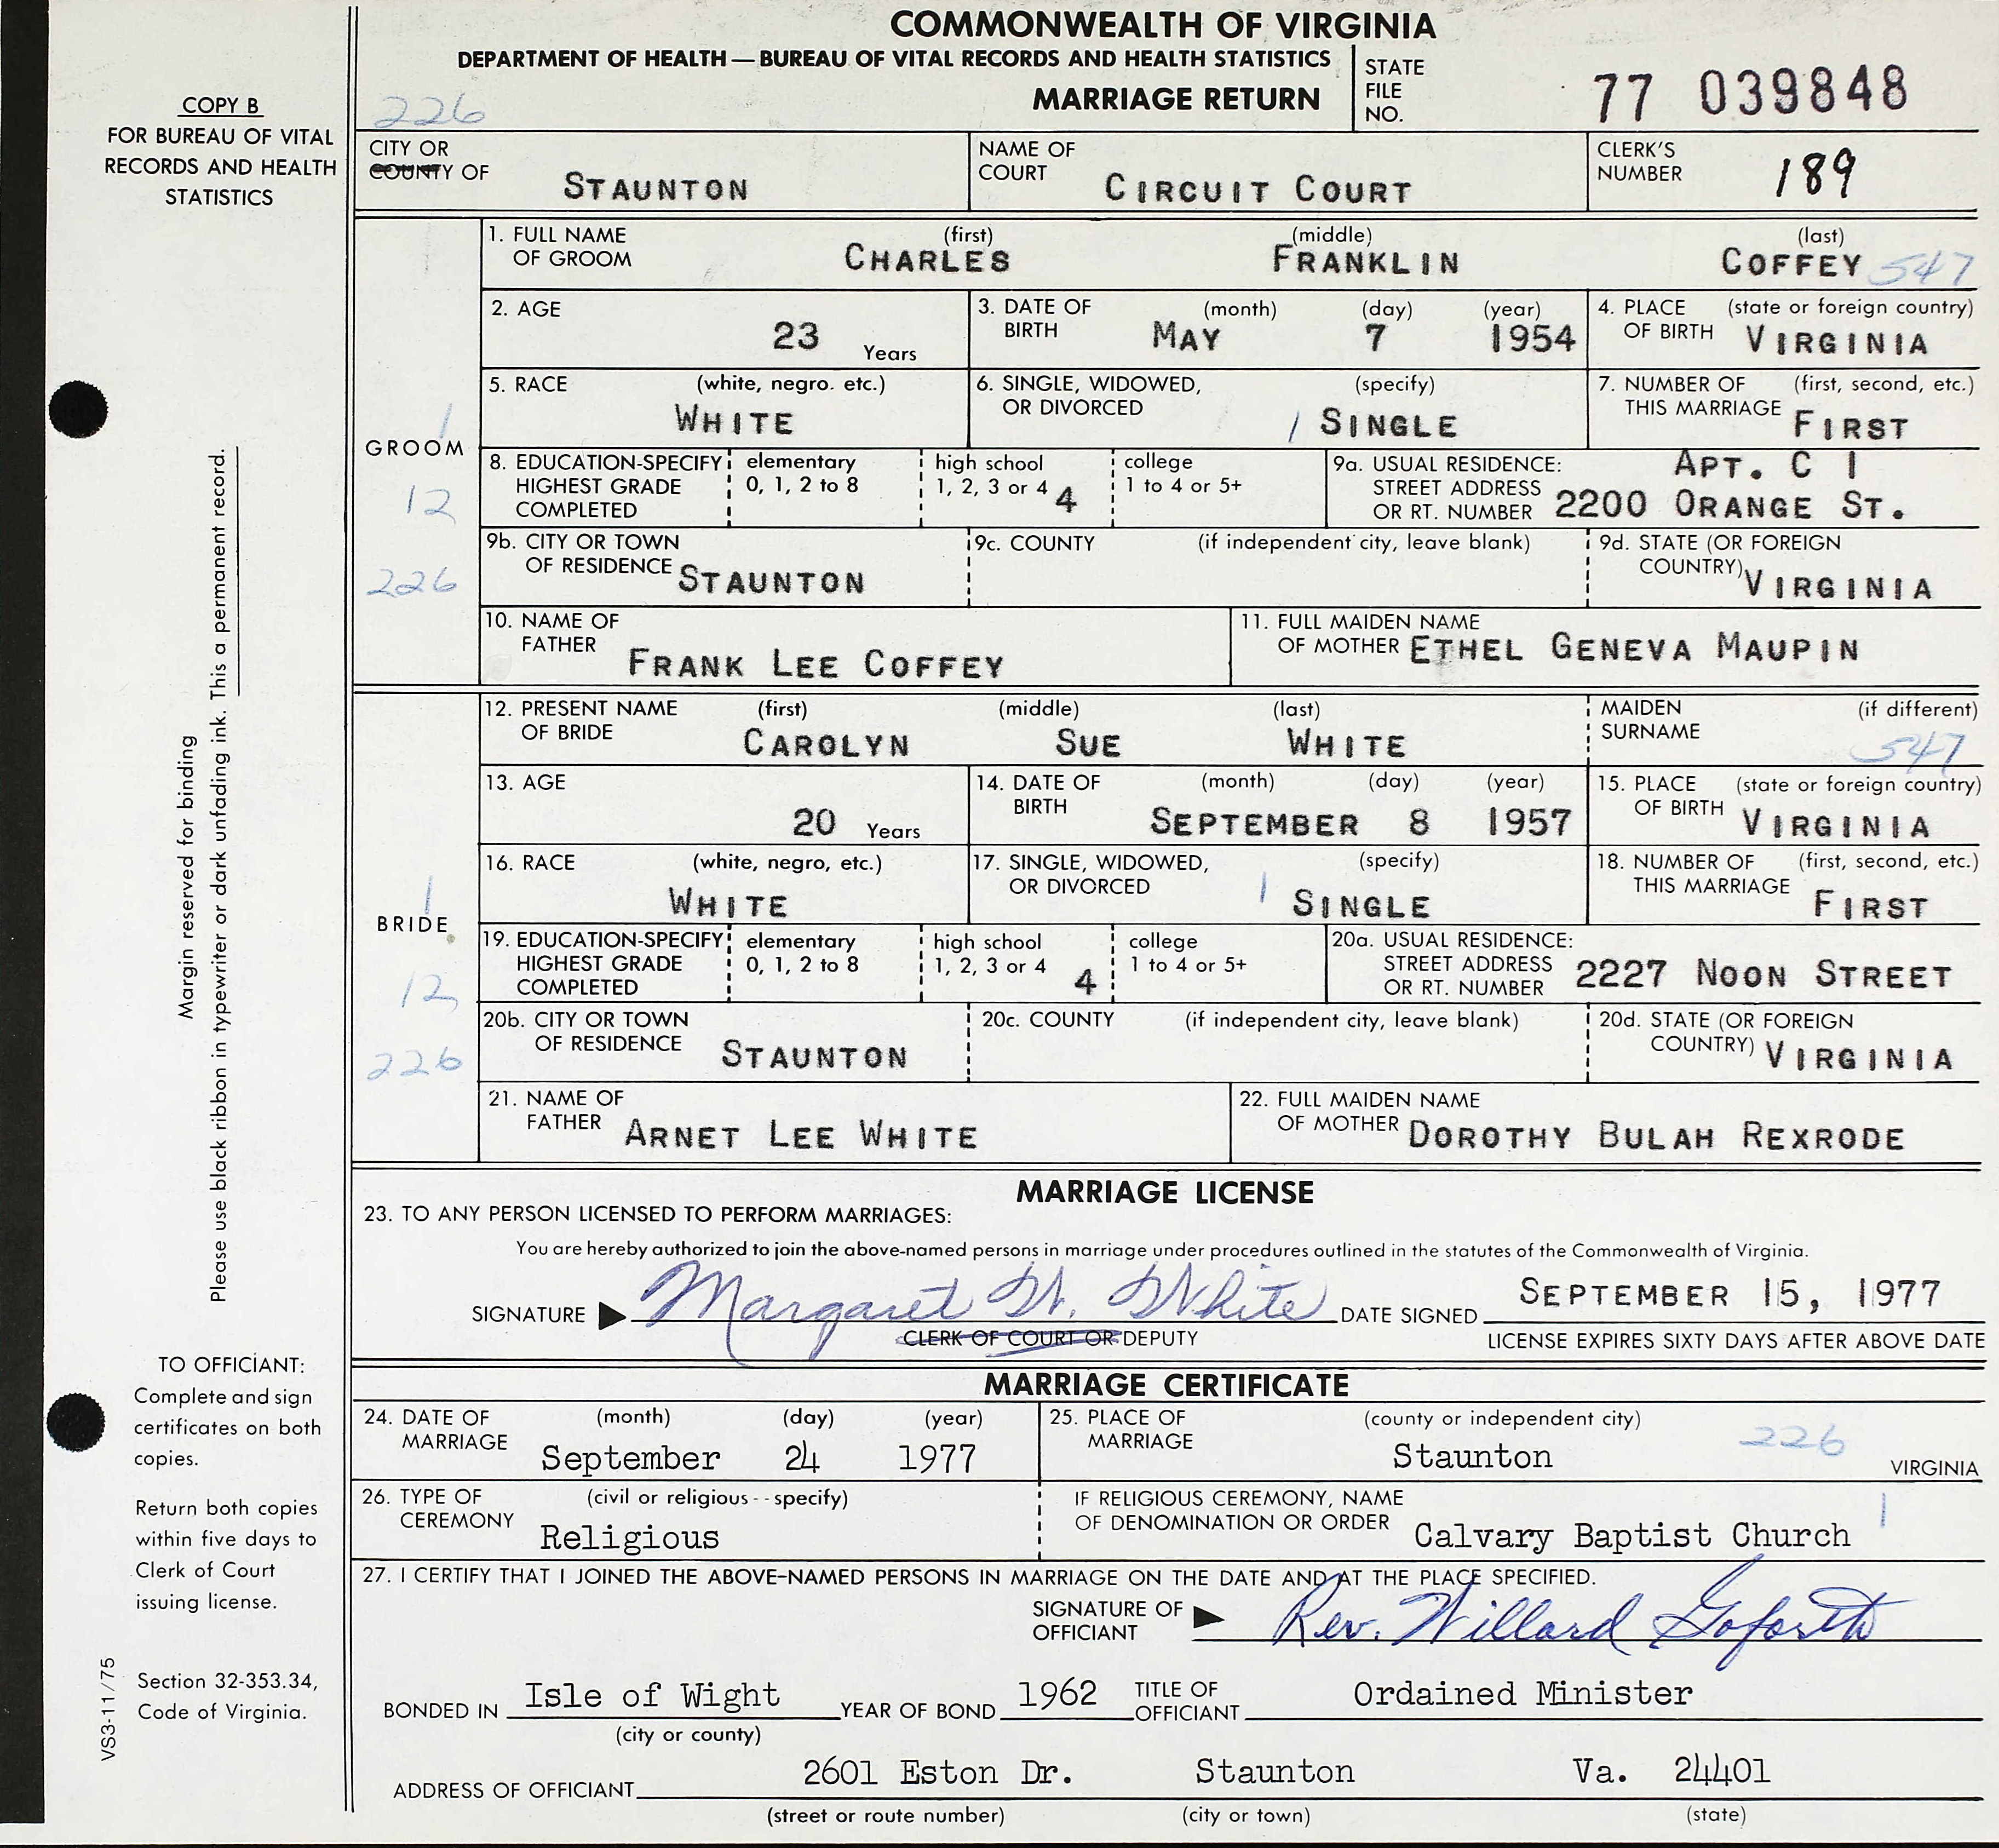 COMMONWEALTH OF VIRGINIA
DEPARTMENT OF HEALTH — BUREAU OF VITAL RECORDS AND HEALTH STATISTICS
226
MARRIAGE RETURN
STATE FILE NO.
77 039848
COPY B
FOR BUREAU OF VITAL
RECORDS AND HEALTH
STATISTICS
CITY OR
COUNTY OF STAUNTON
NAME OF
COURT CIRCUIT COURT
CLERK'S
NUMBER 189
1. FULL NAME (first) (middle) (last)
OF GROOM CHARLES FRANKLIN COFFEY 547
2. AGE 23 Years
3. DATE OF (month) (day) (year)
BIRTH MAY 7 1954
4. PLACE (state or foreign country)
OF BIRTH VIRGINIA
5. RACE (white, negro. etc.)
WHITE
6. SINGLE, WIDOWED, (specify)
OR DIVORCED 1 SINGLE
7. NUMBER OF (first, second, etc.)
THIS MARRIAGE FIRST
1
GROOM
12
226
8. EDUCATION-SPECIFY
HIGHEST GRADE
COMPLETED
elementary
0, 1, 2 to 8
high school
1, 2, 3 or 4 4
college
1 to 4 or 5+
9a. USUAL RESIDENCE: APT. C 1
STREET ADDRESS
OR RT. NUMBER 2200 ORANGE ST.
9b. CITY OR TOWN
OF RESIDENCE STAUNTON
9c. COUNTY (if independent city, leave blank)
9d. STATE (OR FOREIGN
COUNTRY) VIRGINIA
10. NAME OF
FATHER FRANK LEE COFFEY
11. FULL MAIDEN NAME
OF MOTHER ETHEL GENEVA MAUPIN
12. PRESENT NAME (first) (middle) (last)
OF BRIDE CAROLYN SUE WHITE
MAIDEN (if different)
SURNAME 547
13. AGE 20 Years
14. DATE OF (month) (day) (year)
BIRTH SEPTEMBER 8 1957
15. PLACE (state or foreign country)
OF BIRTH VIRGINIA
16. RACE (white, negro, etc.)
WHITE
17. SINGLE, WIDOWED, (specify)
OR DIVORCED 1 SINGLE
18. NUMBER OF (first, second, etc.)
THIS MARRIAGE FIRST
1
BRIDE
12
226
19. EDUCATION-SPECIFY
HIGHEST GRADE
COMPLETED
elementary
0, 1, 2 to 8
high school
1, 2, 3 or 4 4
college
1 to 4 or 5+
20a. USUAL RESIDENCE:
STREET ADDRESS 2227 NOON STREET
OR RT. NUMBER
20b. CITY OR TOWN
OF RESIDENCE STAUNTON
20c. COUNTY (if independent city, leave blank)
20d. STATE (OR FOREIGN
COUNTRY) VIRGINIA
21. NAME OF
FATHER ARNET LEE WHITE
22. FULL MAIDEN NAME
OF MOTHER DOROTHY BULAH REXRODE
Margin reserved for binding
Please use black ribbon in typewriter or dark unfading ink. This a permanent record.
MARRIAGE LICENSE
23. TO ANY PERSON LICENSED TO PERFORM MARRIAGES:
You are hereby authorized to join the above-named persons in marriage under procedures outlined in the statutes of the Commonwealth of Virginia.
SIGNATURE Margaret W. White DATE SIGNED SEPTEMBER 15, 1977
CLERK OF COURT OR DEPUTY LICENSE EXPIRES SIXTY DAYS AFTER ABOVE DATE
MARRIAGE CERTIFICATE
24. DATE OF (month) (day) (year)
MARRIAGE September 24 1977
25. PLACE OF (county or independent city)
MARRIAGE Staunton 226 VIRGINIA
26. TYPE OF (civil or religious -- specify)
CEREMONY Religious
IF RELIGIOUS CEREMONY, NAME
OF DENOMINATION OR ORDER Calvary Baptist Church 1
27. I CERTIFY THAT I JOINED THE ABOVE-NAMED PERSONS IN MARRIAGE ON THE DATE AND AT THE PLACE SPECIFIED.
SIGNATURE OF
OFFICIANT Rev. Willard Goforth
BONDED IN Isle of Wight YEAR OF BOND 1962 TITLE OF
OFFICIANT Ordained Minister
(city or county)
ADDRESS OF OFFICIANT 2601 Eston Dr. Staunton Va. 24401
(street or route number) (city or town) (state)
TO OFFICIANT:
Complete and sign
certificates on both
copies.
Return both copies
within five days to
Clerk of Court
issuing license.
Section 32-353.34,
Code of Virginia.
VS3-11/75